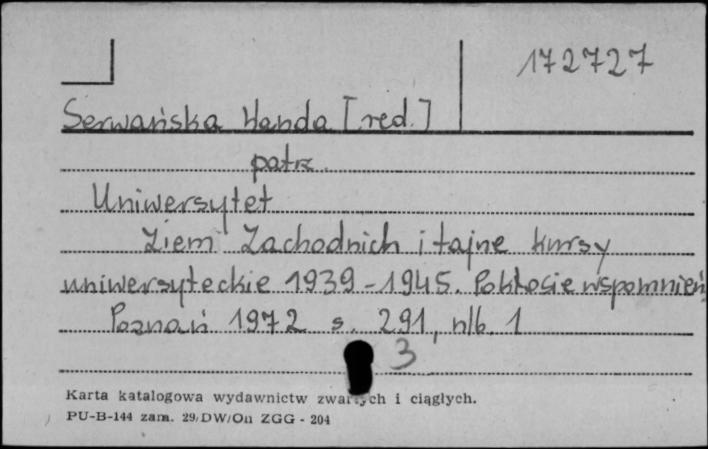 172727
Serwańska Wanda [red.]
patrz
Uniwersytet
Ziem Zachodnich i tajne kursy
uniwersyteckie 1939-1945. Pokłosie wspomnień,
Poznań 1972 s. 291, nlb. 1
3
Karta katalogowa wydawnictw zwartych i ciągłych.
PU-B-144 zam. 29/DW/On ZGG - 204